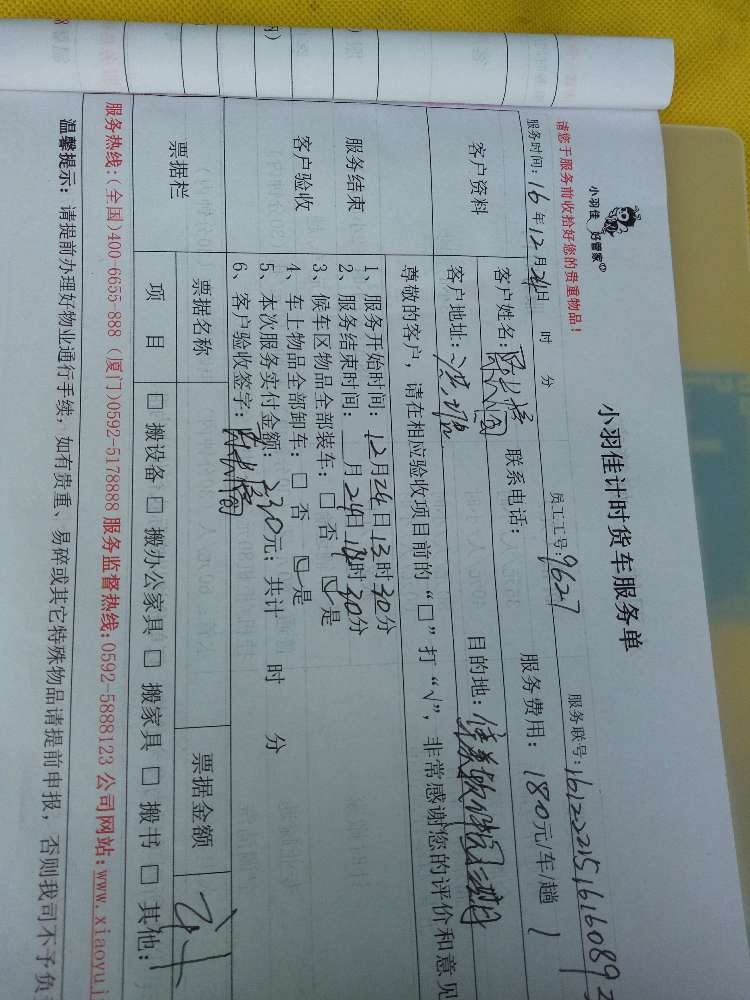 小羽佳 好管家
小羽佳计时货车服务单
请您于服务前收拾好您的贵重物品！
服务时间：16年12月24日 时 分 员工工号：9627 服务联号：1612221516160892
客户资料
客户姓名： 联系电话： 服务费用：180元/车/趟 1
客户地址： 目的地：
尊敬的客户，请在相应验收项目前的“□”打“√”，非常感谢您的评价和意见
服务结束
客户验收
1、服务开始时间：12月24日13时30分
2、服务结束时间：月24日14时30分
3、候车区物品全部装车：□ 否 ☑ 是
4、车上物品全部卸车：□ 否 ☑ 是
5、本次服务实付金额：230元；共计 时 分
6、客户验收签字：
票据栏
票据名称 票据金额
项目 □ 搬设备 □ 搬办公家具 □ 搬家具 □ 搬书 □ 其他：
服务热线：（全国）400-6655-888（厦门）0592-5178888 服务监督热线：0592-5888123 公司网站：www.xiaoyuj
温馨提示：请提前办理好物业通行手续，如有贵重、易碎或其它特殊物品请提前申报，否则我司不予负